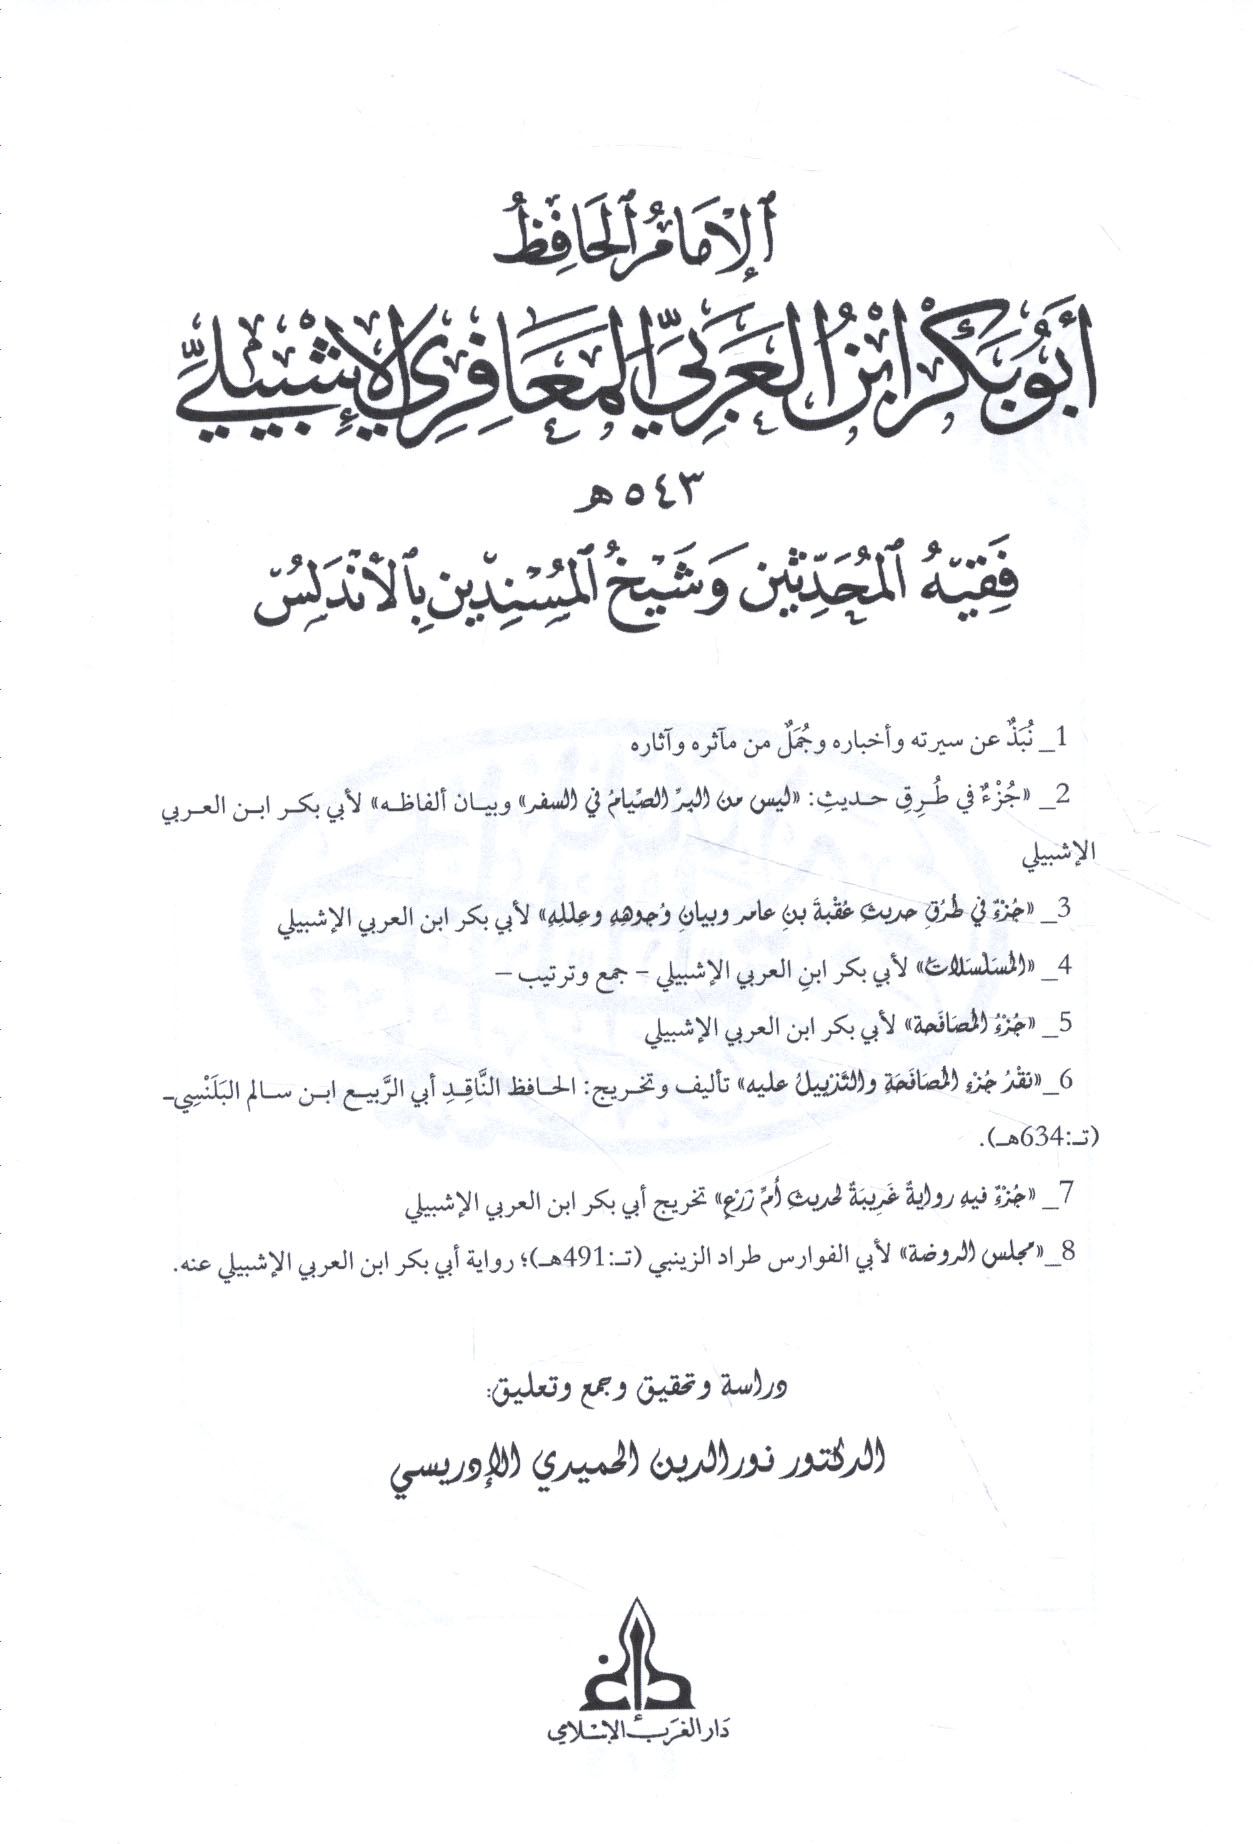 ٱلإِمَامُ ٱلحَافِظُ
أَبُو بَكْر ابْنُ العَرَبِيِّ المَعَافِرِي الإِشْبِيلِيّ
٥٤٣ هـ
فَقِيهُ ٱلمُحَدِّثِين وَشَيْخُ ٱلمُسْنِدِين بِٱلأَنْدَلِسُ
1_ نُبَذٌ عن سيرته وأخباره وجُمَلٌ من مآثره وآثاره
2_ «جُزْءٌ في طُرِقِ حديثِ: «ليس من البرِّ الصِّيامُ في السفر» وبيان ألفاظه» لأبي بكر ابن العربي
الإشبيلي
3_ «جُزْءٌ في طُرُقِ حديثِ عُقْبةَ بنِ عامر وبيانِ وُجوهِهِ وعِللِهِ» لأبي بكر ابن العربي الإشبيلي
4_ «المُسَلسَلات» لأبي بكر ابنِ العربي الإشبيلي – جمع وترتيب –
5_ «جُزْءُ المُصَافَحة» لأبي بكر ابن العربي الإشبيلي
6_ «نقْدُ جُزْءِ المُصَافَحَةِ والتَّذييلُ عليه» تأليف وتخريج: الحافظ النَّاقِدِ أبي الرَّبيع ابن سالم البَلَنْسِي-
(تـ:634هـ).
7_ «جُزْءٌ فيه روايةٌ غَرِيبَةٌ لحديثِ أُمِّ زَرْعٍ» تخريج أبي بكر ابن العربي الإشبيلي
8_ «مجلس الروضة» لأبي الفوارس طراد الزينبي (تـ:491هـ)؛ رواية أبي بكر ابن العربي الإشبيلي عنه.
دراسة وتحقيق وجمع وتعليق:
الدكتور نورالدين الحميدي الإدريسي
دَار الغَرب الإسْلامي